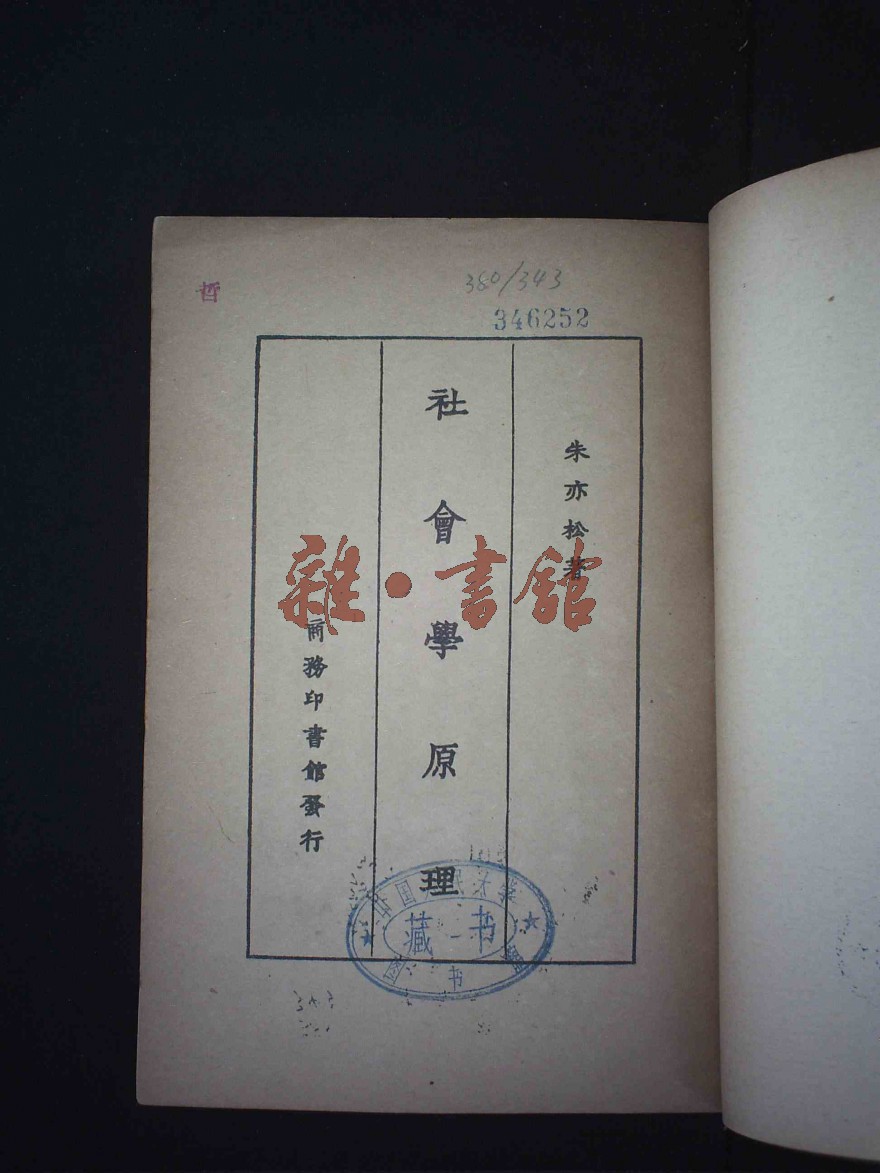 哲
380/343
346252
朱亦松著
社會學原理
商務印書館發行
雜·書館
中国人民大学
藏书
圖书館